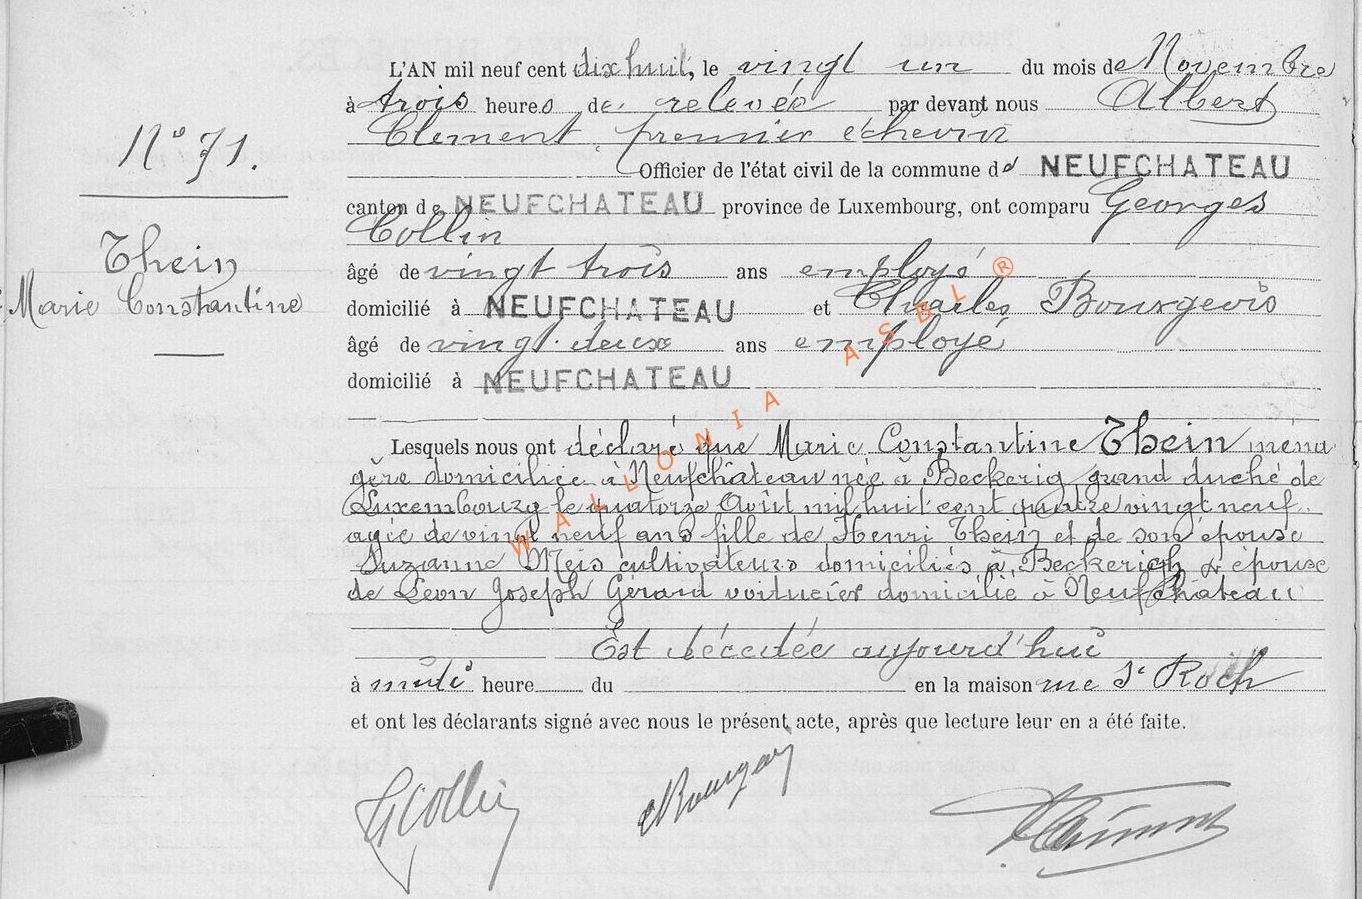 N° 71.
Thein
Marie Constantine
L'AN mil neuf cent dix huit, le vingt un du mois de Novembre
à trois heures de relevée par devant nous Albert
Clement, premier échevin
Officier de l'état civil de la commune d' NEUFCHATEAU
canton de NEUFCHATEAU province de Luxembourg, ont comparu Georges
Collin
âgé de vingt trois ans employé
domicilié à NEUFCHATEAU et Charles Bourgeois
âgé de vingt deux ans employé
domicilié à NEUFCHATEAU
Lesquels nous ont déclaré que Marie Constantine Thein ména
gère domiciliée à Neufchâteau née à Beckerig grand duché de
Luxembourg le quatorze Août mil huit cent quatre vingt neuf.
agée de vingt neuf ans fille de Henri Thein et de son épouse
Suzanne Meis cultivateurs domiciliés à Beckerich & épouse
de Léon Joseph Gérard voiturier domicilié à Neufchâteau
Est décédée aujourd'hui
à midi heure du en la maison rue St Roch
et ont les déclarants signé avec nous le présent acte, après que lecture leur en a été faite.
GCollin
WALLONIA ASBL ®